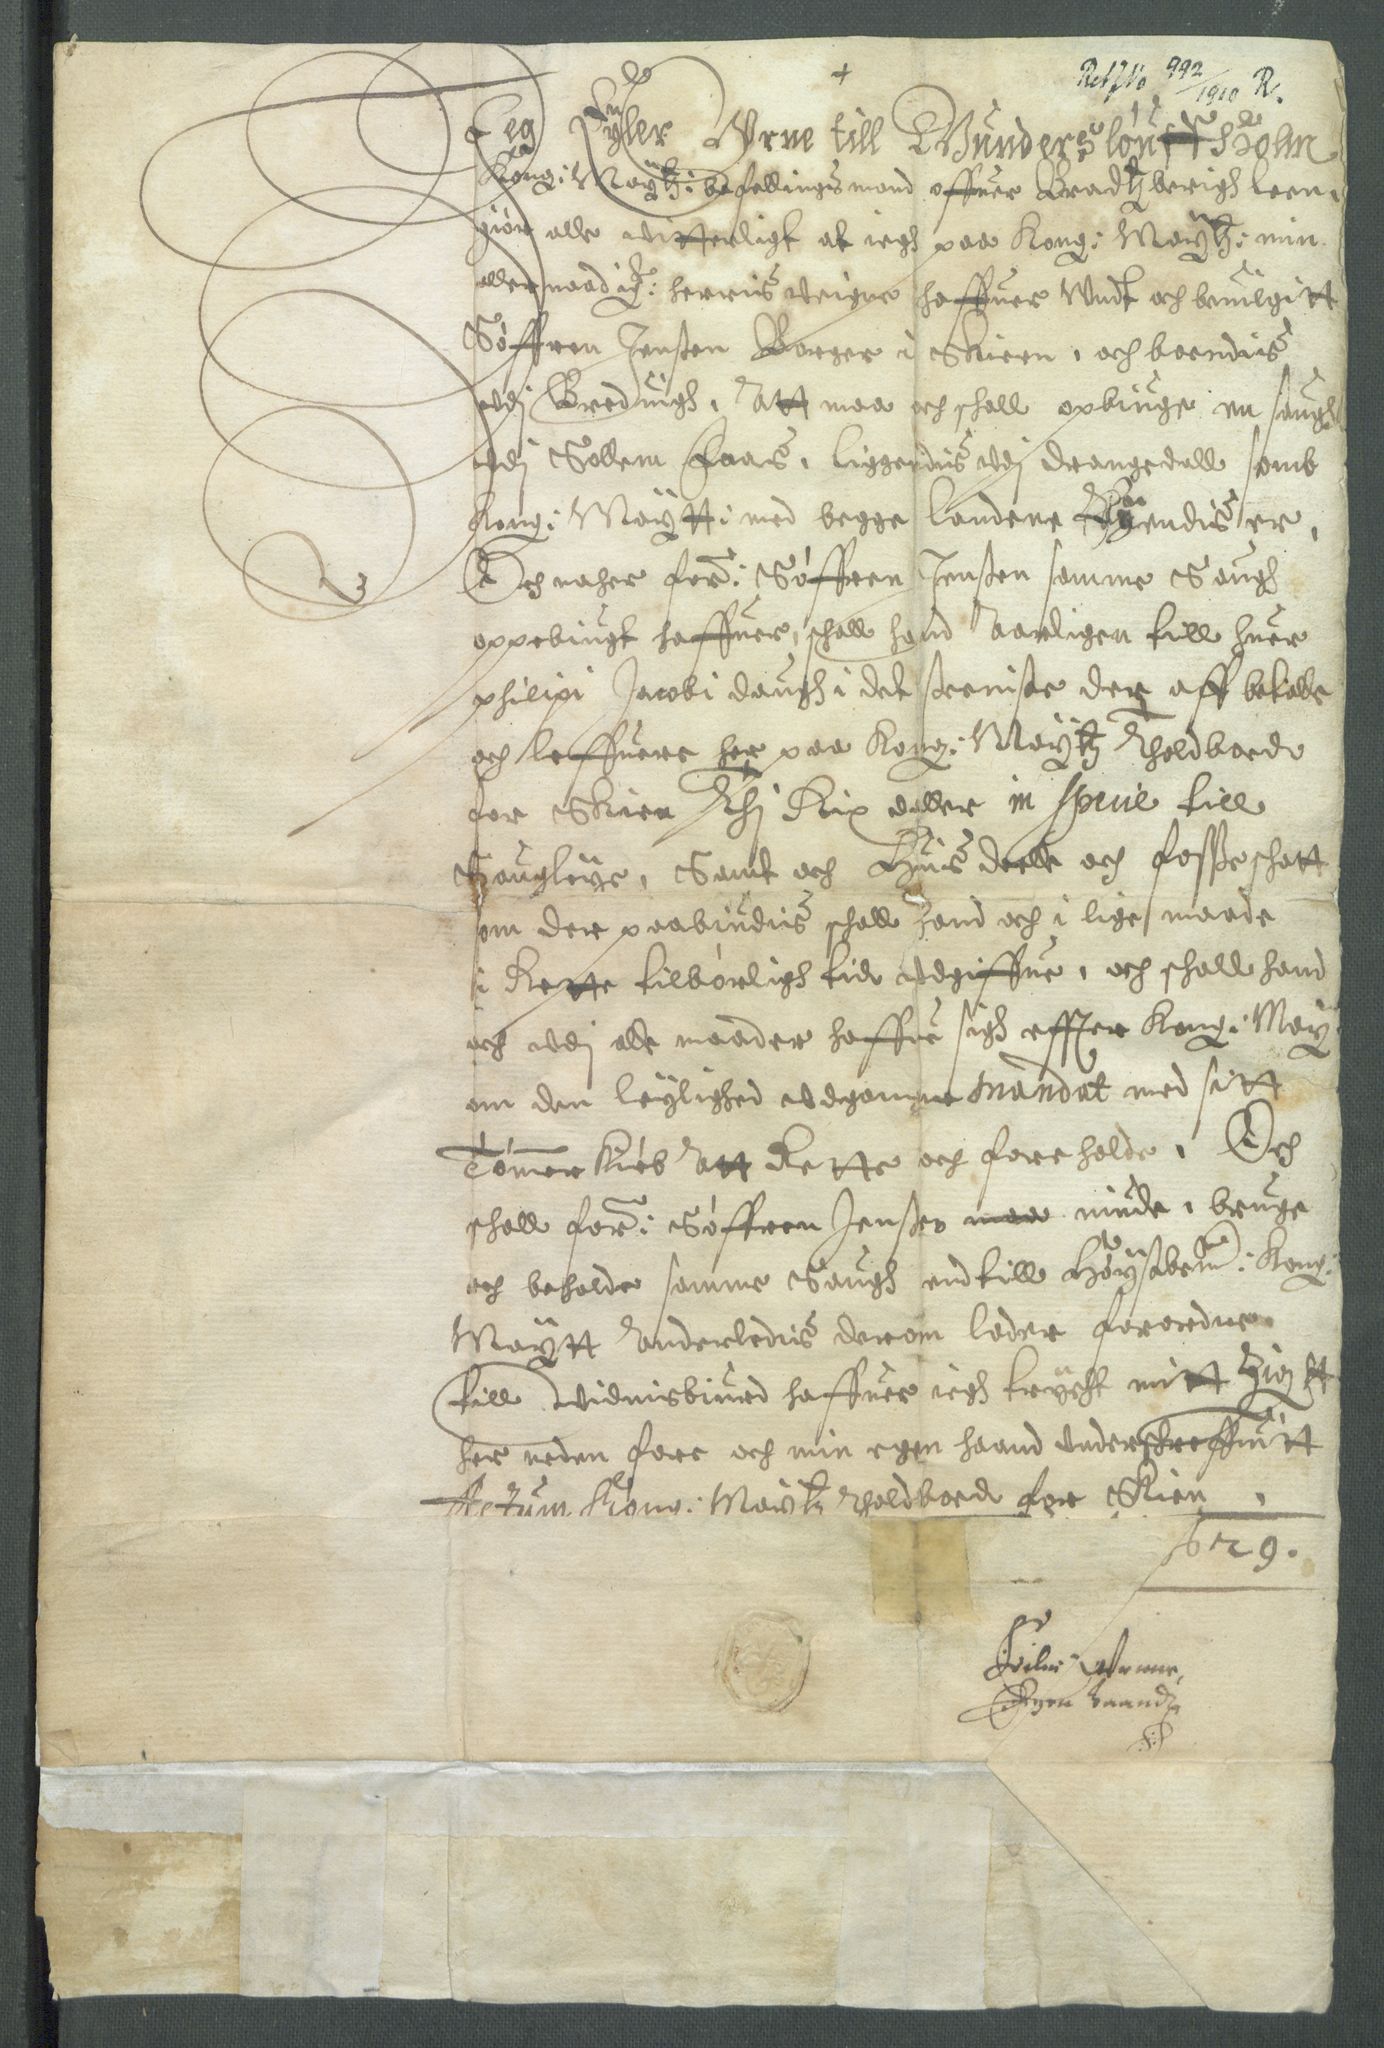 +
Ref No 992/1910 R.
Jeg Eyler Vrne till Gunderslöufsholm
Kong: Maytz: befallingsmand offuer Bradtzbergh leen,
giör alle vitterligt at iegh paa Kong: Maytz: min
aller naadig: herris veigne haffuer undt och beuilgitt
Söffren Jensen Borger i Skien, och boendis
vdj Breduigh, Att maa och schall opbiuge en saugh
vdj Sollem Faas, liggendis vdj Drangedall somb
Kong: Maytt: med begge landene Eyendis er,
Och naher for: Söffren Jensen samme Saugh
oppebiugt haffuer, schall hand Aarligen till huer
philipi Jacobi daugh i det seeniste der aff betalle
och leffuere her paa Kong: Maytz Tholdboed
for Skien Thj Rix daller in specie till
Saugleye, Samt och Huis deelle och fosseschatt
som der paabiudis schall hand och i lige maade
i Rette tilbörligh tid udgiffue, och schall hand
och vdj alle maader haffue sigh effter Kong: May:
om den leylighed udgangne Mandat med sitt
Tömmer kiöb Att Rette och foreholde, Och
schall for: Söffren Jensen maa niude, bruge
och beholde samme Saugh indtill Höystbem: Kong:
Maytt Anderledis derom lader forordne
till Vidnisbiurd haffuer iegh trycht mitt Zignett
her neden fore och min egen haand underschreffuitt
Actum Kong: Maytz Tholdboed for Skien,
1629.
Eiler Vrnne
Egen haandt